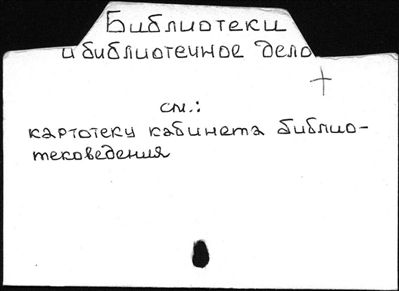 Библиотеки
и библиотечное дело
+
см.:
картотеку кабинета библио-
тековедения